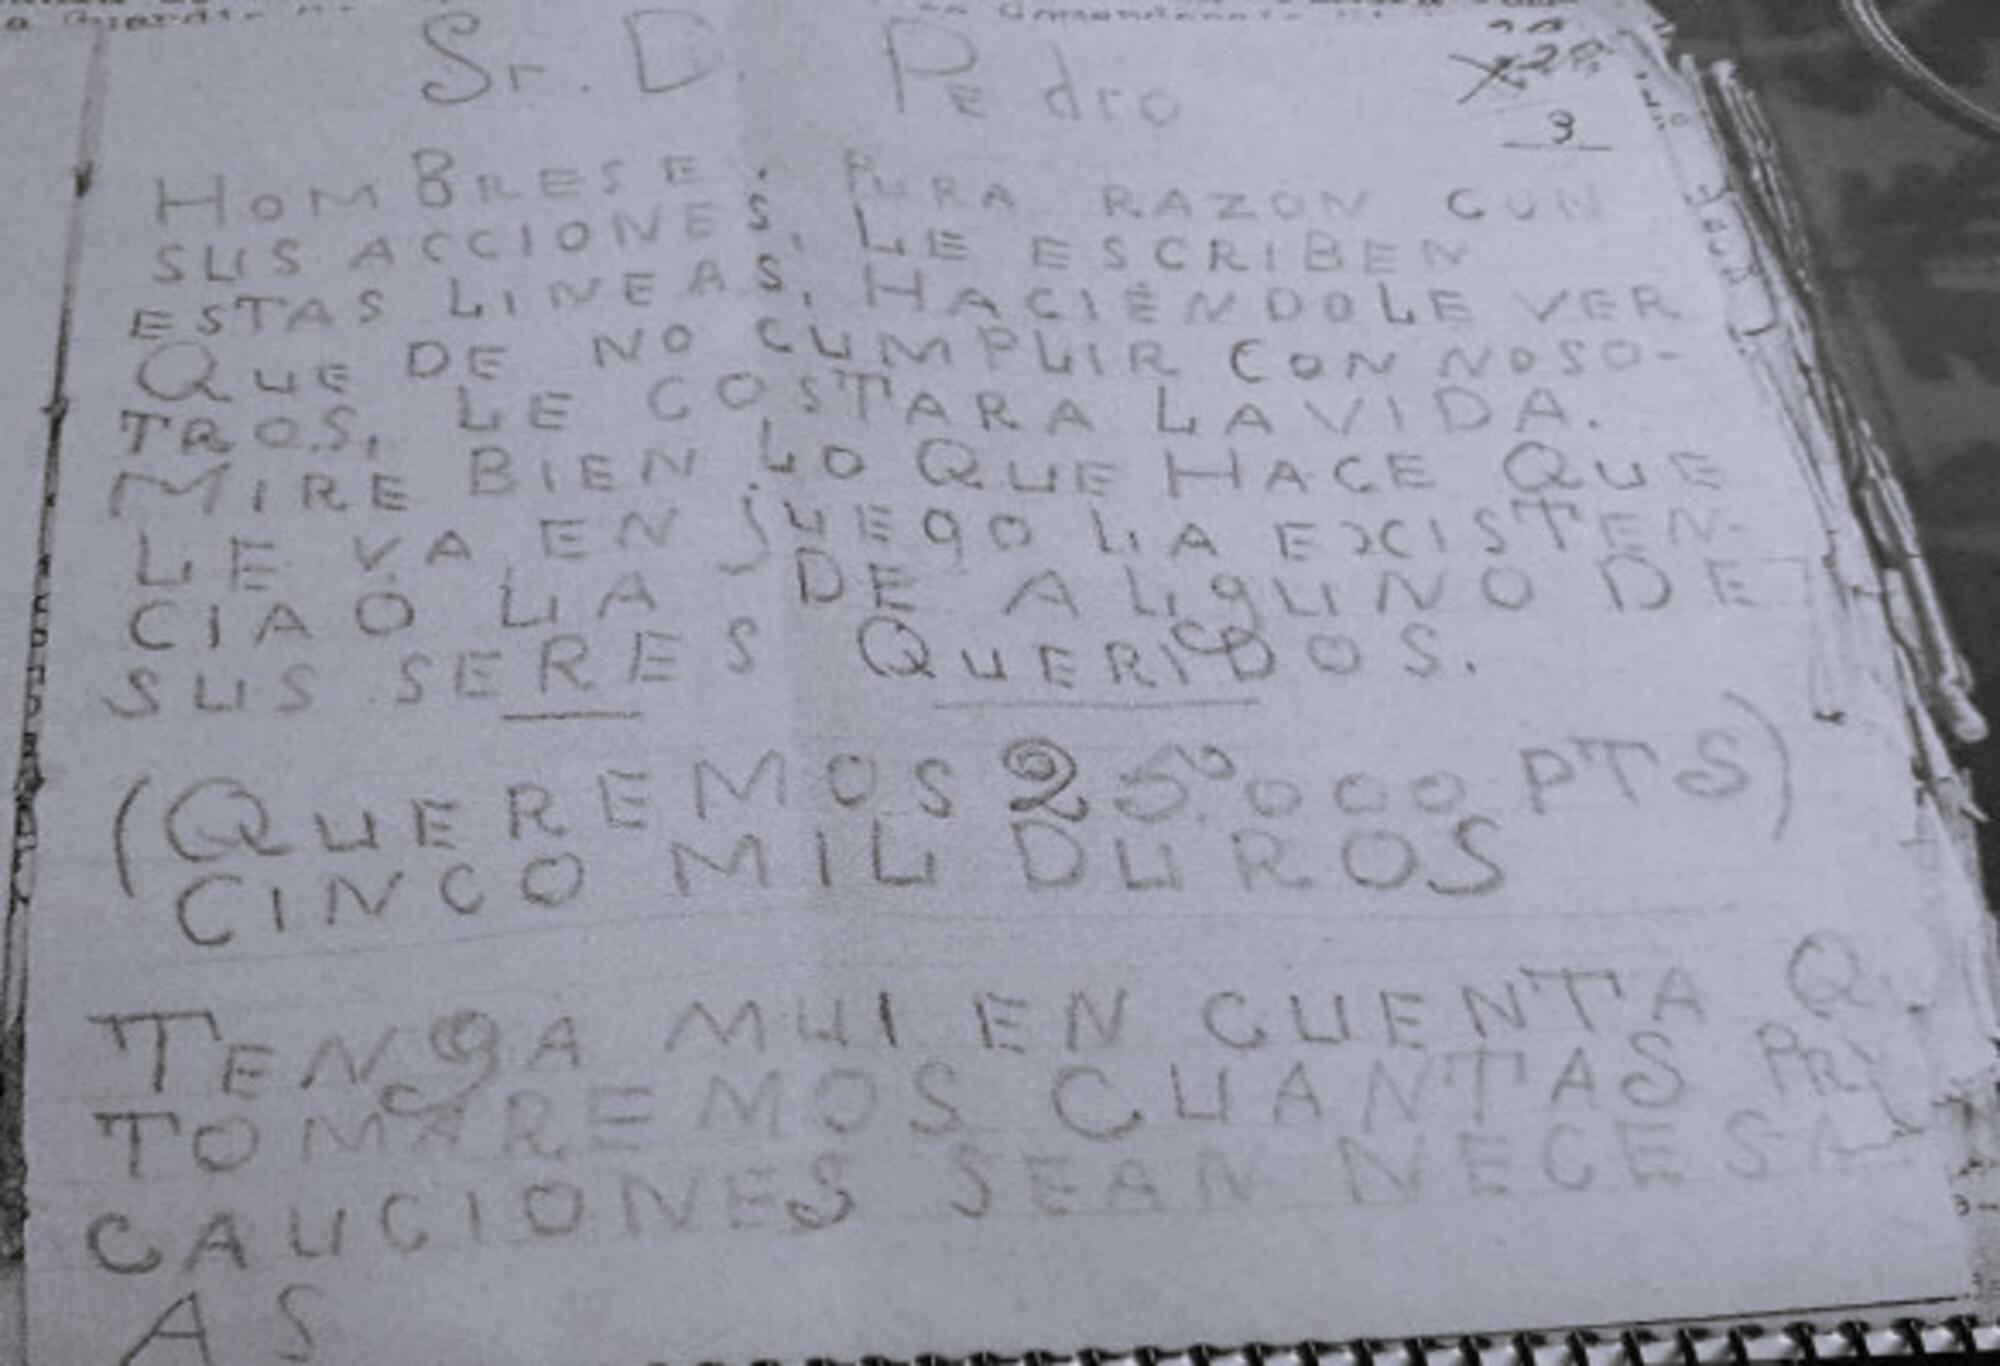 Sr. D. PEdro
3
HOMBRESE, PURA RAZÓN CON
SUS ACCIONES, LE ESCRIBEN
ESTAS LINEAS, HACIÉNDOLE VER
QUE DE NO CUMPLIR CON NOSO-
TROS, LE COSTARA LA VIDA.
MIRE BIEN LO QUE HACE QUE
LE VA EN JUEGO LA EXISTEN-
CIA O LA DE ALGUNO DE
SUS SERES QUERIDOS.
(QUEREMOS 25.000 PTS)
CINCO MIL DUROS
TENGA MUI EN CUENTA Q.
TOMAREMOS CUANTAS PRE
CAUCIONES SEAN NECESA
AS